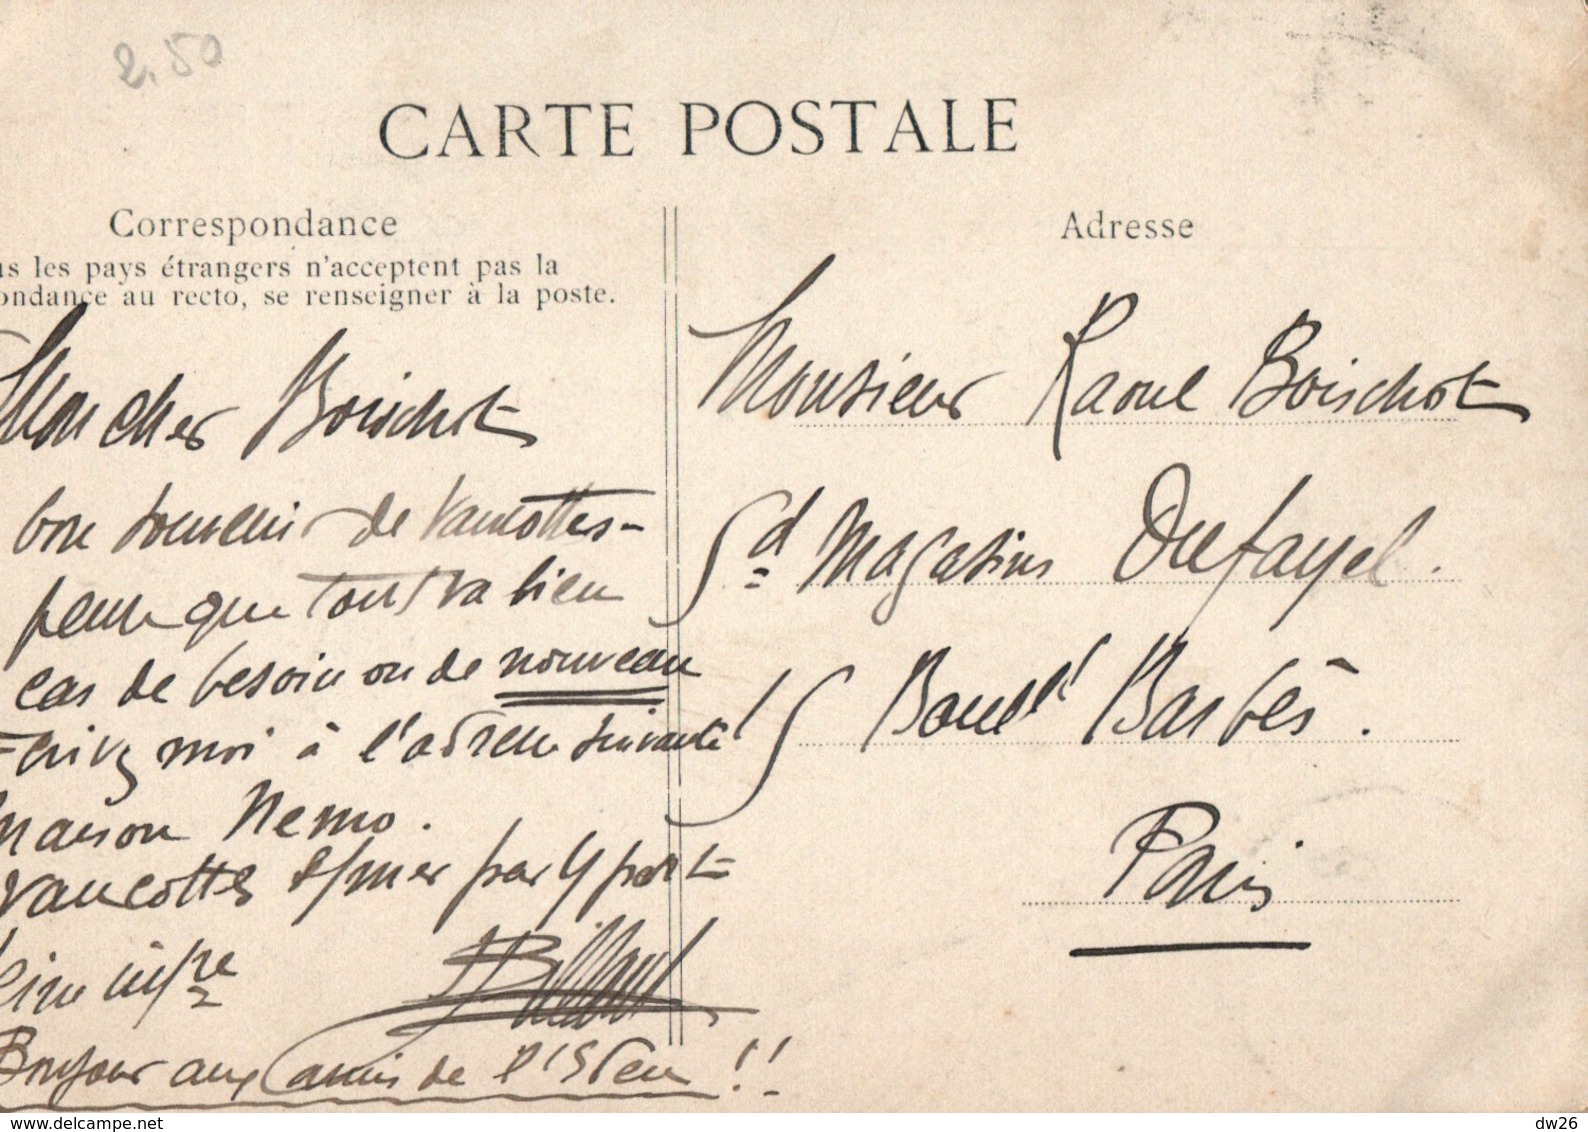 2.50
CARTE POSTALE
Correspondance
les pays étrangers n'acceptent pas la
ondance au recto, se renseigner à la poste.
Mon cher Boischot
bon souvenir de Vaucottes-
pense que tout va bien
cas de besoin ou de nouveau
Ecrivez moi à l'adresse suivante
maison Nemo.
Vaucottes s/mer par Yport
Seine infre
Billard
Bonjour aux amis de l'Eden !!
Adresse
Monsieur Raoul Boischot
Gd Magasins Dufayel.
Bould Barbès.
Paris
dw26